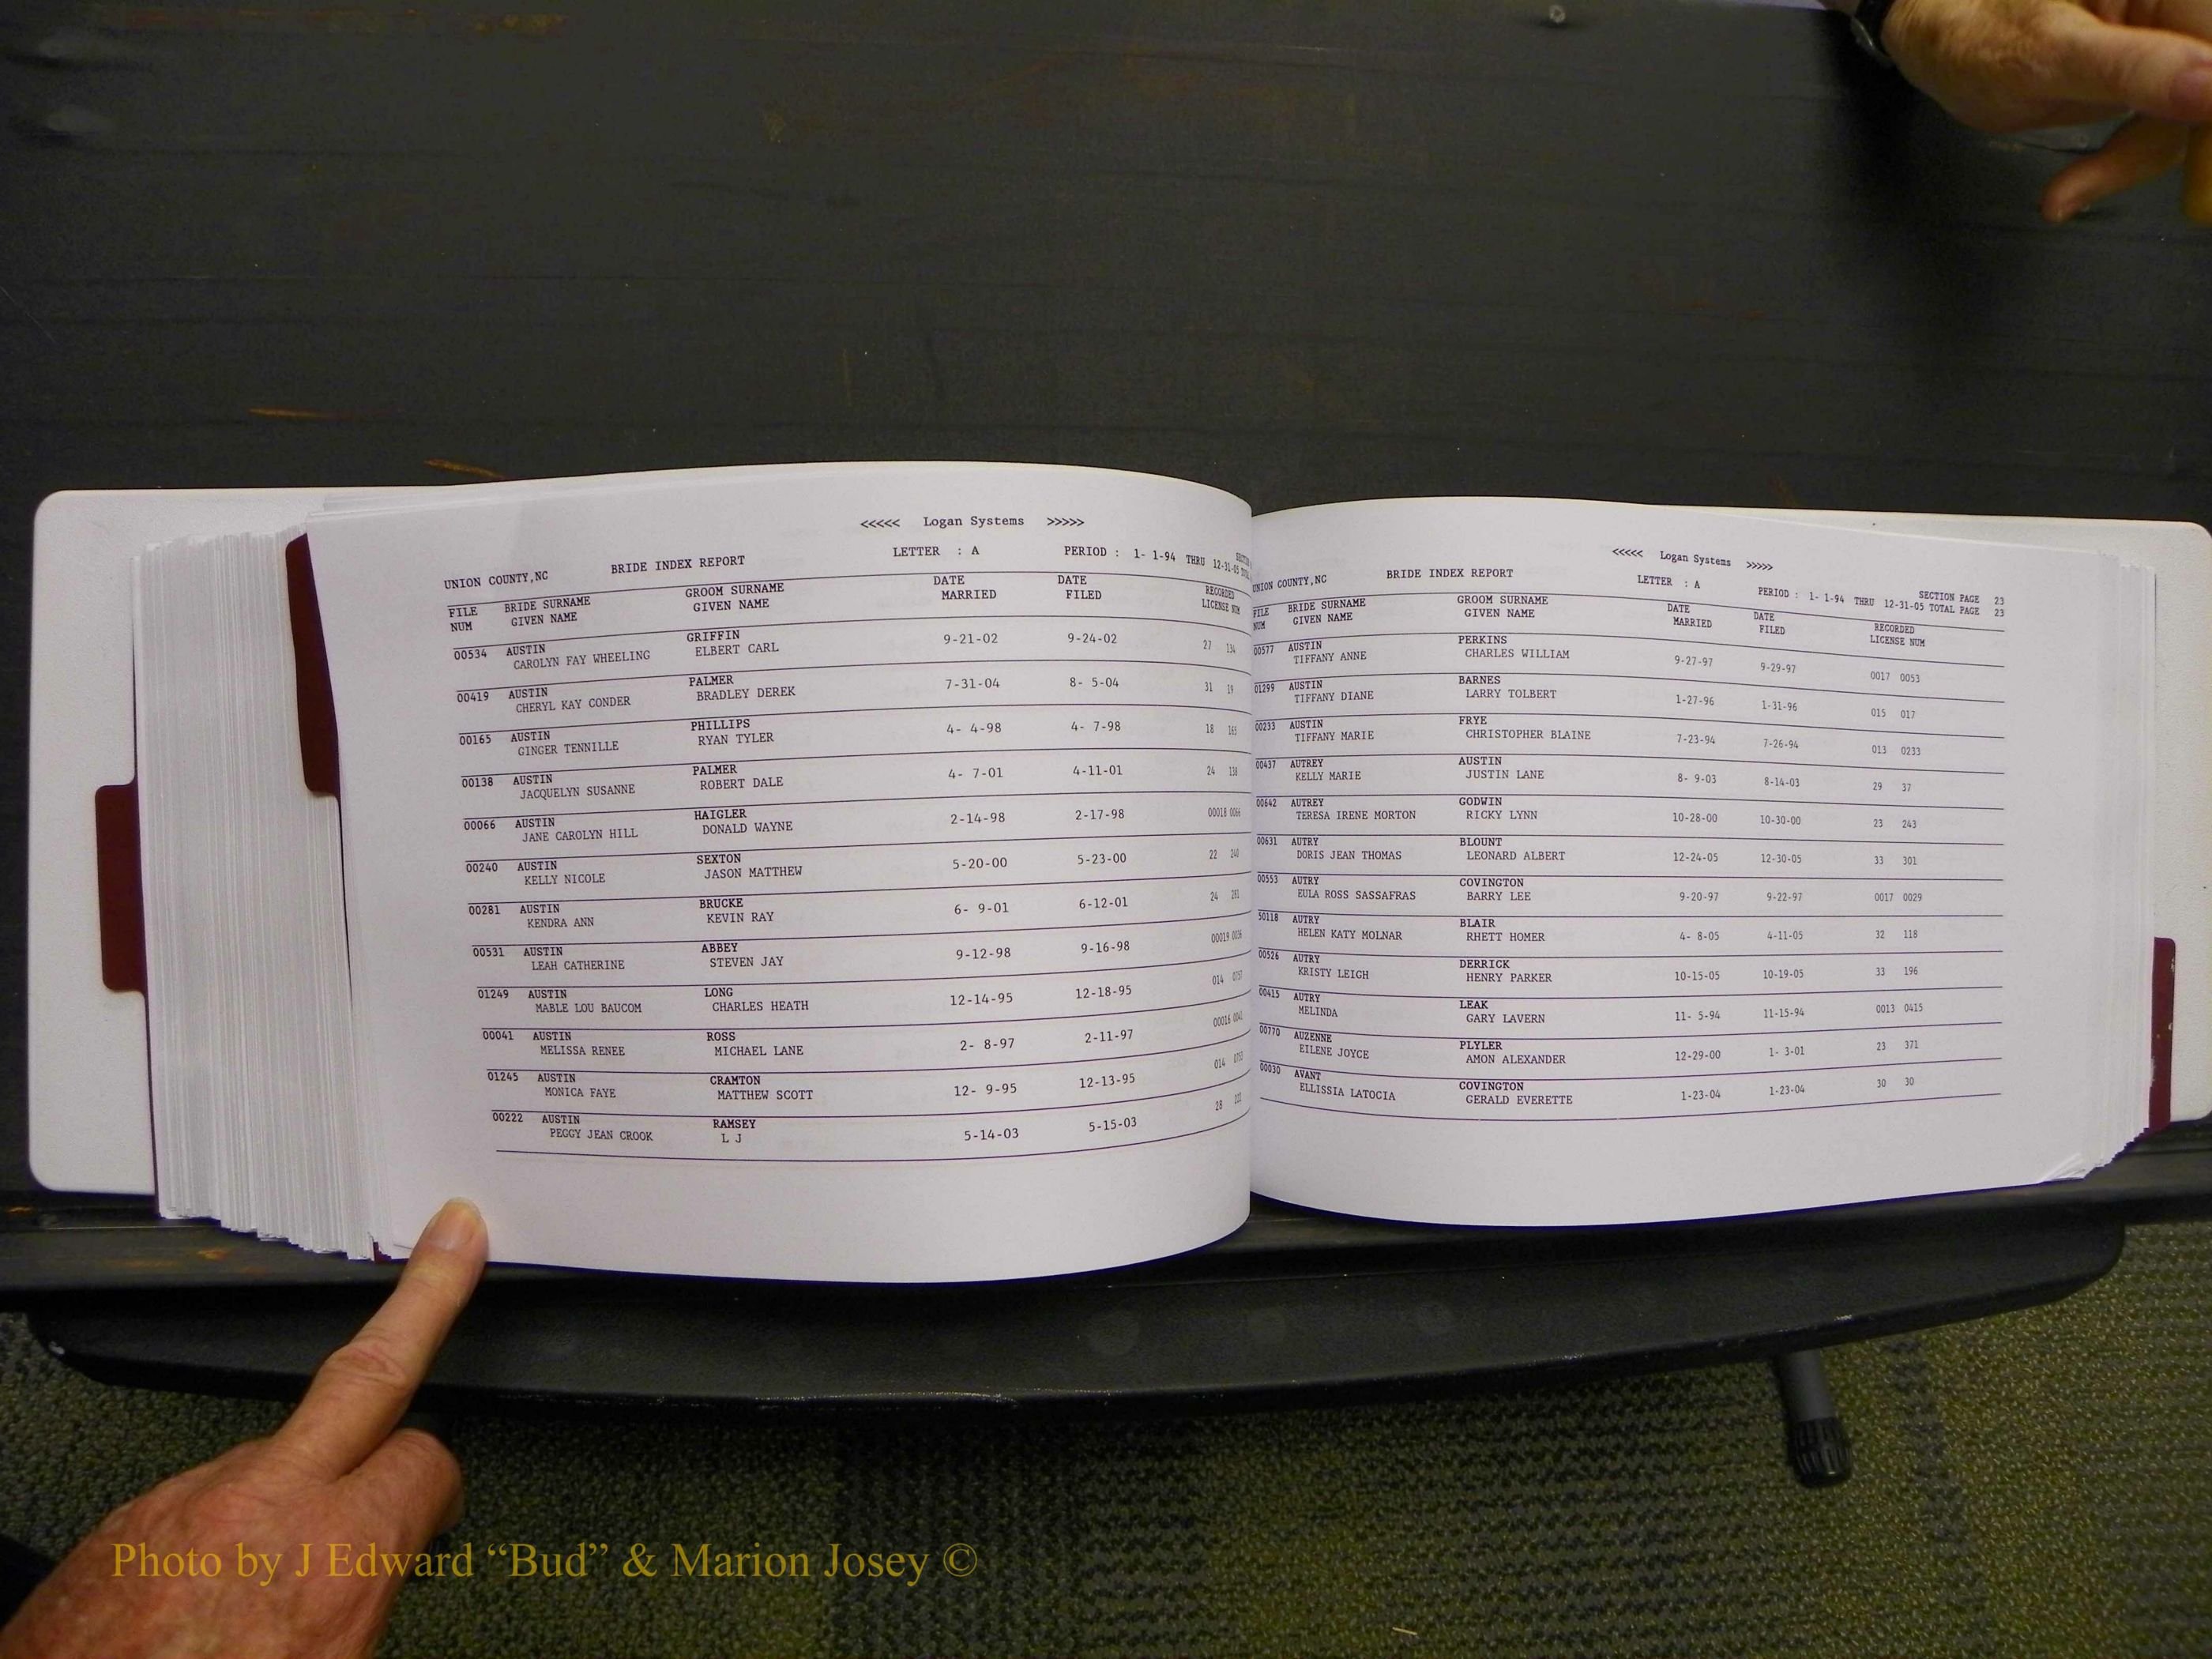 <<<<< Logan Systems >>>>>
UNION COUNTY,NC BRIDE INDEX REPORT LETTER : A PERIOD : 1- 1-94 THRU 12-31-05
FILE BRIDE SURNAME GROOM SURNAME DATE DATE RECORDED
NUM GIVEN NAME GIVEN NAME MARRIED FILED LICENSE NUM
00534 AUSTIN GRIFFIN 9-21-02 9-24-02 27 134
CAROLYN FAY WHEELING ELBERT CARL
00419 AUSTIN PALMER 7-31-04 8- 5-04 31 19
CHERYL KAY CONDER BRADLEY DEREK
00165 AUSTIN PHILLIPS 4- 4-98 4- 7-98 18 165
GINGER TENNILLE RYAN TYLER
00138 AUSTIN PALMER 4- 7-01 4-11-01 24 138
JACQUELYN SUSANNE ROBERT DALE
00066 AUSTIN HAIGLER 2-14-98 2-17-98 00018 0066
JANE CAROLYN HILL DONALD WAYNE
00240 AUSTIN SEXTON 5-20-00 5-23-00 22 240
KELLY NICOLE JASON MATTHEW
00281 AUSTIN BRUCKE 6- 9-01 6-12-01 24 281
KENDRA ANN KEVIN RAY
00531 AUSTIN ABBEY 9-12-98 9-16-98 00019
LEAH CATHERINE STEVEN JAY
01249 AUSTIN LONG 12-14-95 12-18-95 014
MABLE LOU BAUCOM CHARLES HEATH
00041 AUSTIN ROSS 2- 8-97 2-11-97 00016 0041
MELISSA RENEE MICHAEL LANE
01245 AUSTIN CRAMTON 12- 9-95 12-13-95 014
MONICA FAYE MATTHEW SCOTT
00222 AUSTIN RAMSEY 5-14-03 5-15-03 28 222
PEGGY JEAN CROOK L J
<<<<< Logan Systems >>>>>
UNION COUNTY,NC BRIDE INDEX REPORT LETTER : A PERIOD : 1- 1-94 THRU 12-31-05 SECTION PAGE 23
TOTAL PAGE 23
FILE BRIDE SURNAME GROOM SURNAME DATE DATE RECORDED
NUM GIVEN NAME GIVEN NAME MARRIED FILED LICENSE NUM
00577 AUSTIN PERKINS 9-27-97 9-29-97 0017 0053
TIFFANY ANNE CHARLES WILLIAM
01299 AUSTIN BARNES 1-27-96 1-31-96 015 017
TIFFANY DIANE LARRY TOLBERT
00233 AUSTIN FRYE 7-23-94 7-26-94 013 0233
TIFFANY MARIE CHRISTOPHER BLAINE
00437 AUTREY AUSTIN 8- 9-03 8-14-03 29 37
KELLY MARIE JUSTIN LANE
00642 AUTREY GODWIN 10-28-00 10-30-00 23 243
TERESA IRENE MORTON RICKY LYNN
00631 AUTRY BLOUNT 12-24-05 12-30-05 33 301
DORIS JEAN THOMAS LEONARD ALBERT
00553 AUTRY COVINGTON 9-20-97 9-22-97 0017 0029
EULA ROSS SASSAFRAS BARRY LEE
50118 AUTRY BLAIR 4- 8-05 4-11-05 32 118
HELEN KATY MOLNAR RHETT HOMER
00526 AUTRY DERRICK 10-15-05 10-19-05 33 196
KRISTY LEIGH HENRY PARKER
00415 AUTRY LEAK 11- 5-94 11-15-94 0013 0415
MELINDA GARY LAVERN
00770 AUZENNE PLYLER 12-29-00 1- 3-01 23 371
EILENE JOYCE AMON ALEXANDER
00030 AVANT COVINGTON 1-23-04 1-23-04 30 30
ELLISSIA LATOCIA GERALD EVERETTE
Photo by J Edward “Bud” & Marion Josey ©